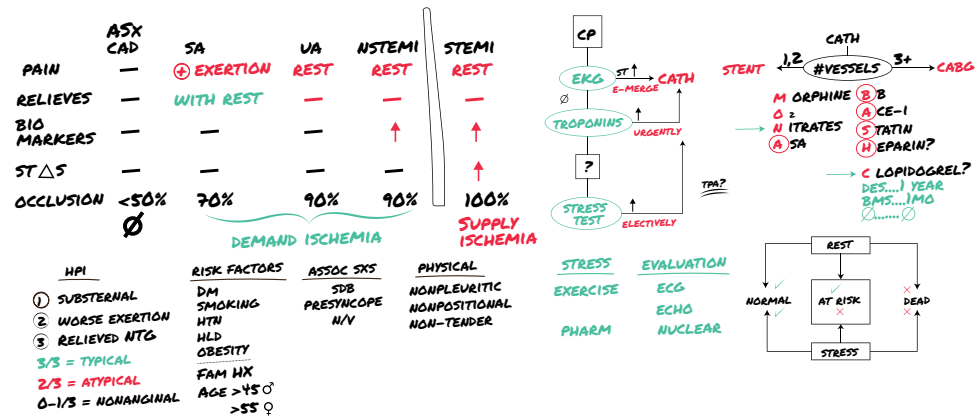 ASx CAD SA UA NSTEMI STEMI
PAIN — + EXERTION REST REST REST
RELIEVES — WITH REST — — —
BIO MARKERS — — — ↑ ↑
ST △S — — — — ↑
OCCLUSION <50% 70% 90% 90% 100%
Ø
DEMAND ISCHEMIA
SUPPLY ISCHEMIA
HPI
1 SUBSTERNAL
2 WORSE EXERTION
3 RELIEVED NTG
3/3 = TYPICAL
2/3 = ATYPICAL
0-1/3 = NONANGINAL
RISK FACTORS
DM
SMOKING
HTN
HLD
OBESITY
FAM HX
AGE >45 ♂
>55 ♀
ASSOC SXS
SDB
PRESYNCOPE
N/V
PHYSICAL
NONPLEURITIC
NONPOSITIONAL
NON-TENDER
CP
EKG ST ↑ CATH
E-MERGE
Ø
TROPONINS ↑
URGENTLY
?
STRESS TEST ↑
ELECTIVELY
TPA?
STRESS EVALUATION
EXERCISE ECG
ECHO
PHARM NUCLEAR
CATH
STENT 1,2 #VESSELS 3+ CABG
MORPHINE
O2
NITRATES
ASA
BB
ACE-I
STATIN
HEPARIN?
CLOPIDOGREL?
DES....1 YEAR
BMS....1MO
Ø.......Ø
REST
NORMAL ✓ ✓
AT RISK ✓ ×
DEAD × ×
STRESS